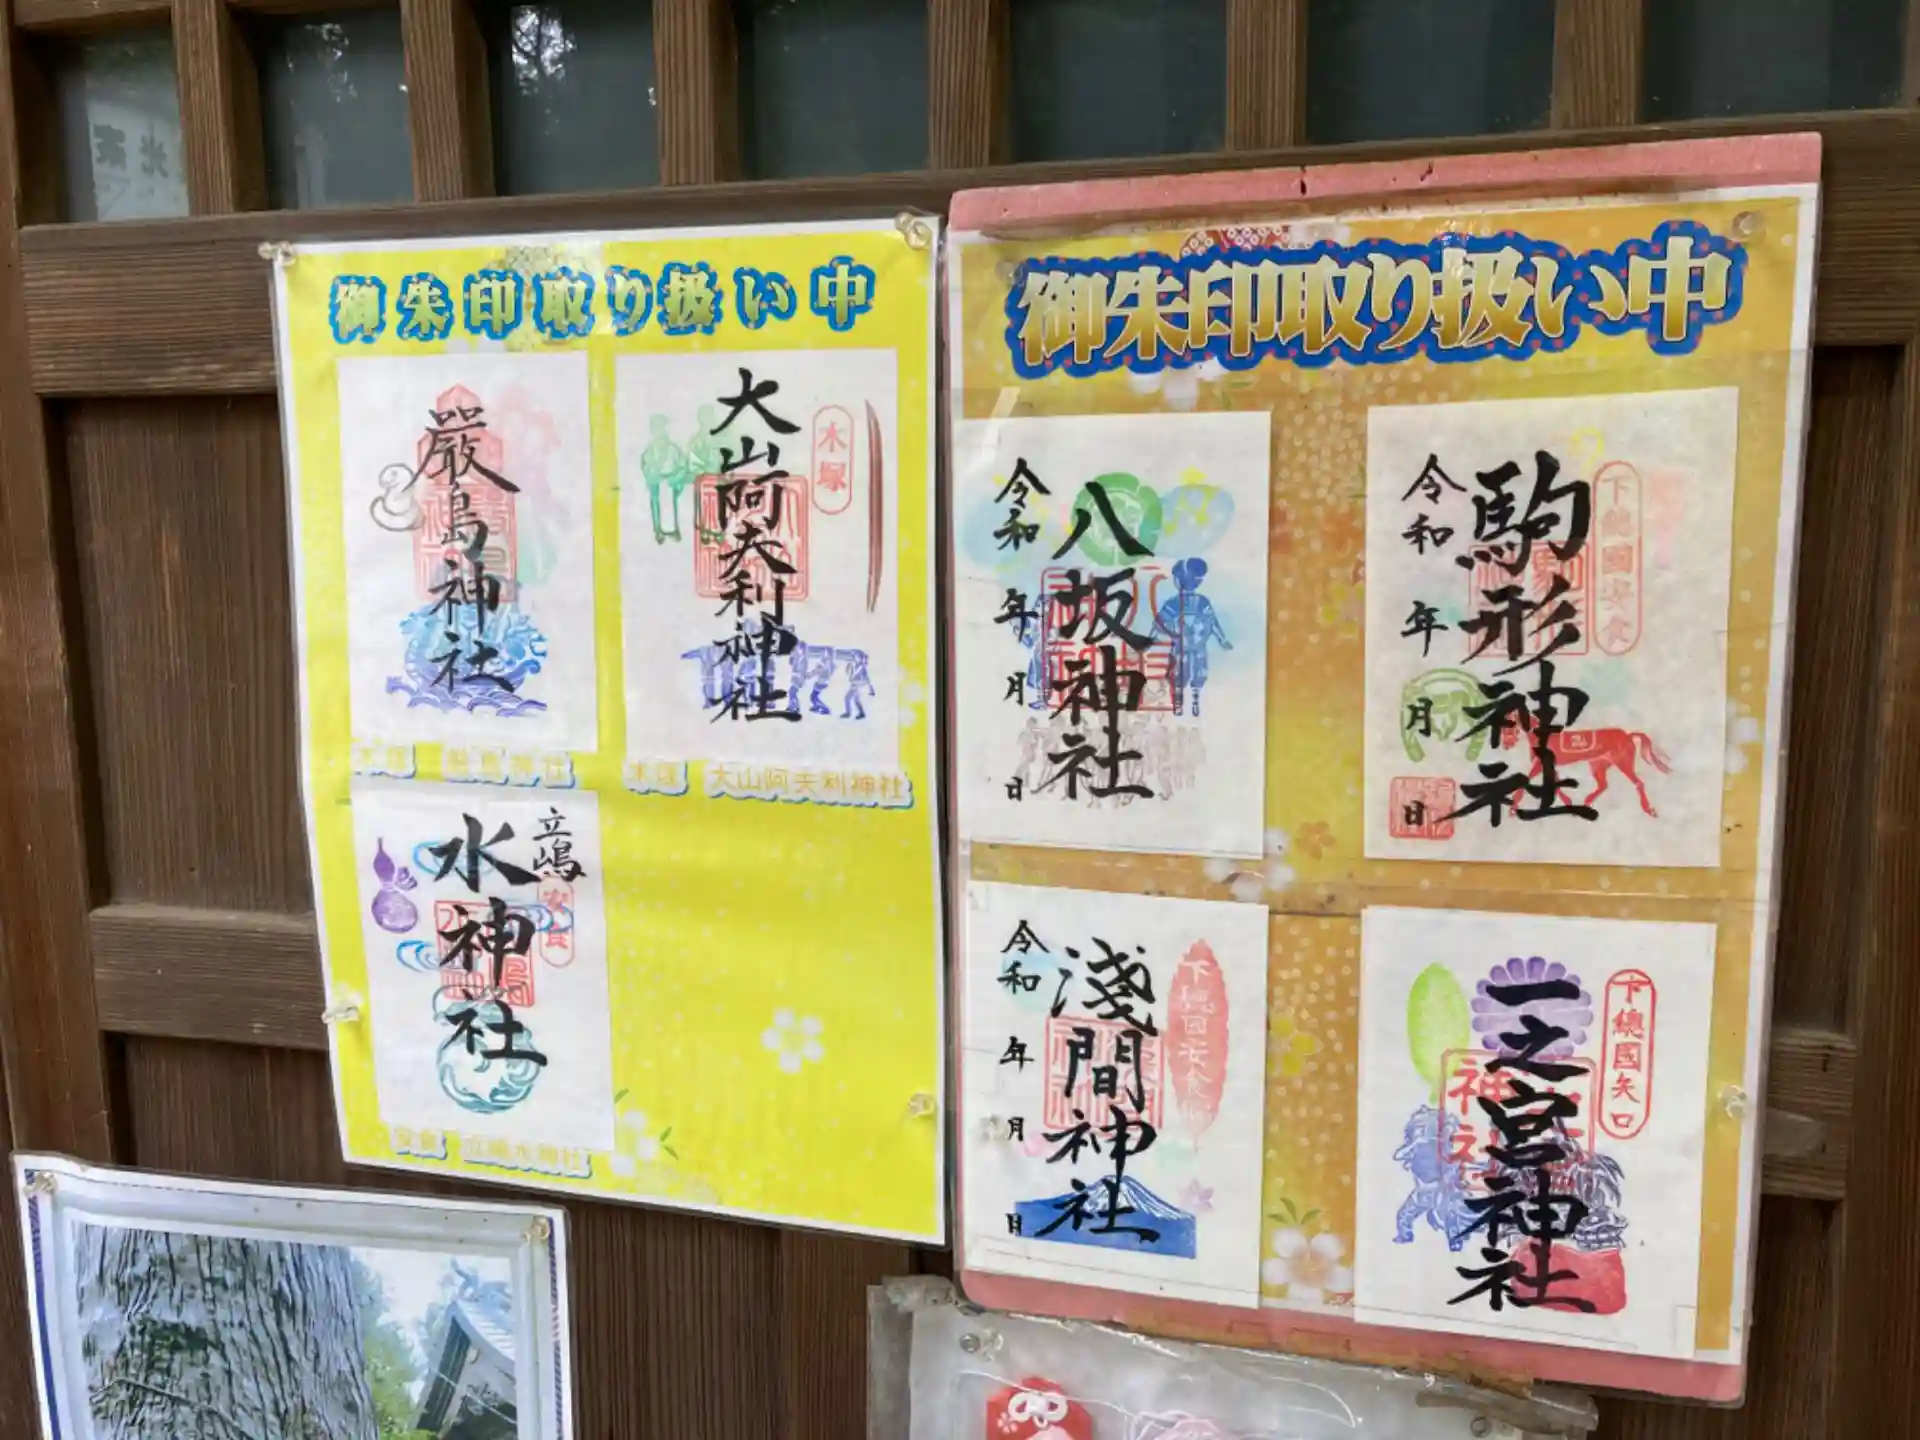 御朱印取り扱い中
嚴島神社
大山阿夫利神社
木塚
木塚 嚴島神社
木塚 大山阿夫利神社
立嶋
水神社
安食
安食 立嶋水神社
御朱印取り扱い中
八坂神社
令和 年 月 日
下總國安食
駒形神社
令和 年 月 日
下總国安食
淺間神社
令和 年 月 日
下總國矢口
一之宮神社